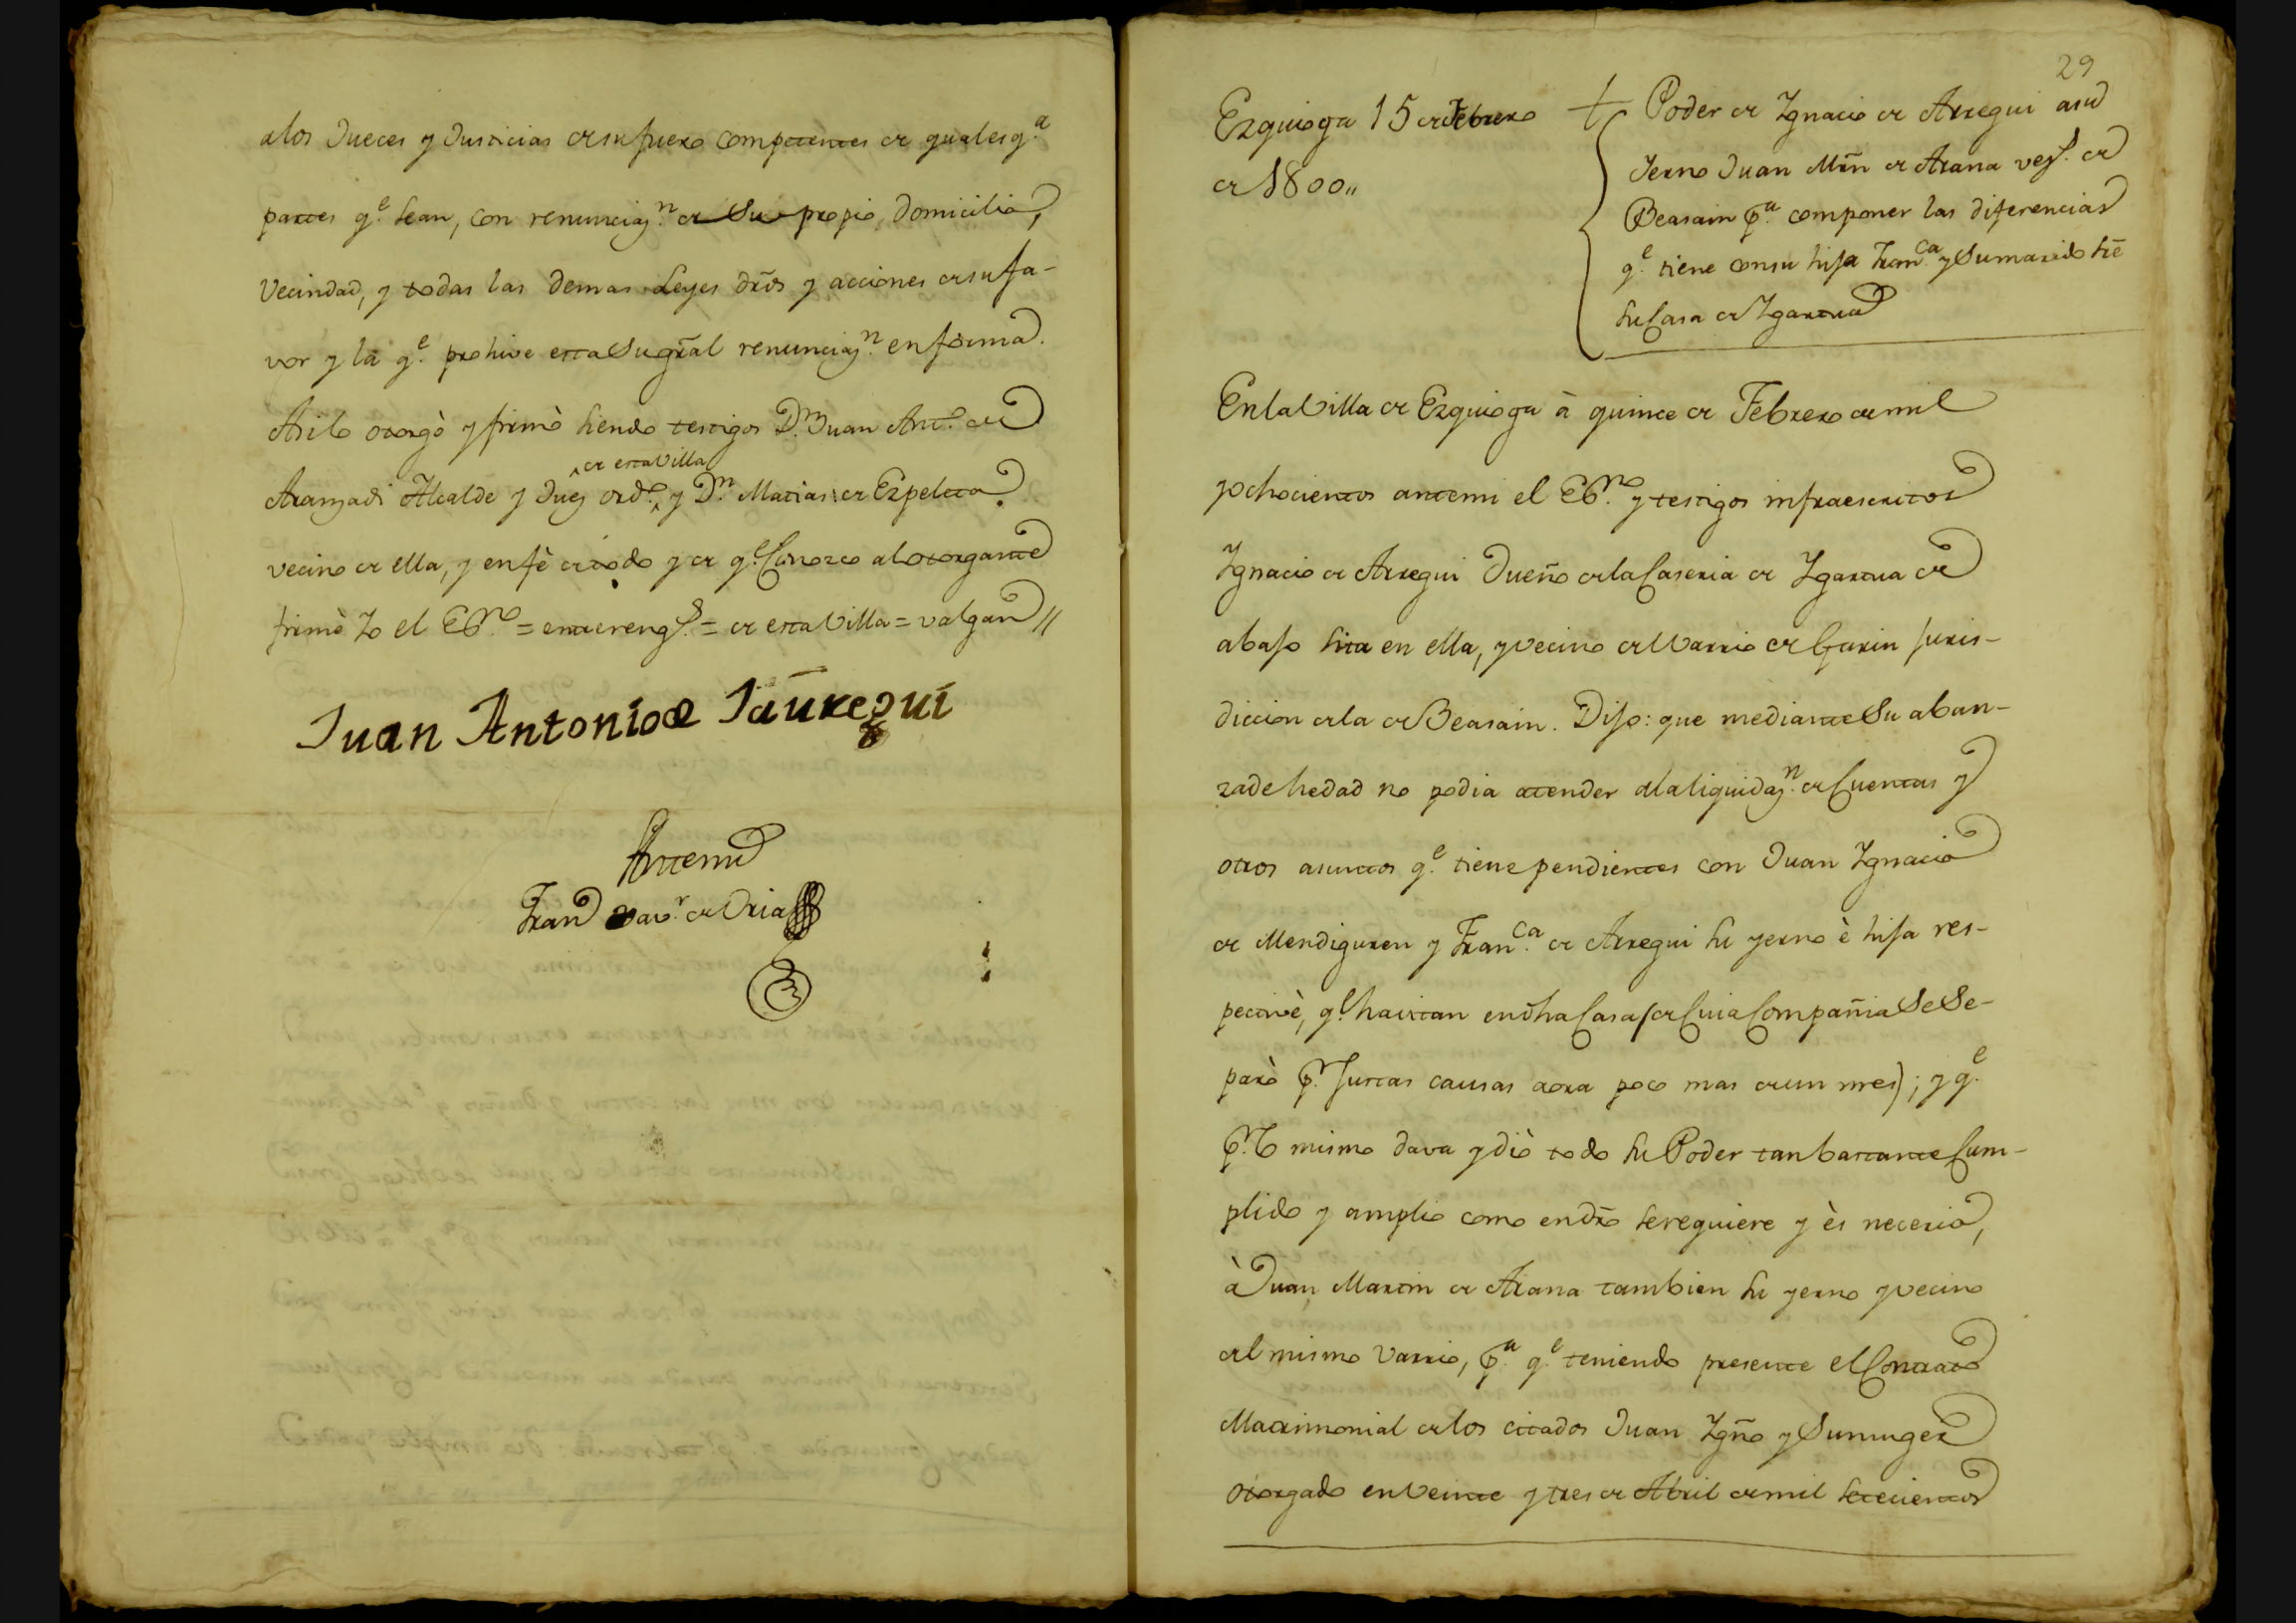 a los Jueces y Justicias de su fuero competentes de qualesq.ª
partes q.e sean, con renunciaz.n de su propio, Domicilio,
Vecindad, y todas las demas Leyes dr̃os y acciones de su fa-
vor y la q.e prohive esta su gr̃al renunciaz.n en forma.
Asi lo otorgò y firmò siendo testigos D.n Juan Ant.o de
de esta Villa
Aramzadi Alcalde y Juez ord.o, y D.n Matias de Ezpeleta
vecino de ella, y en fè de todo y de q.e Conozco al otorgante
firmè Yo el Es.no = entrereng.s = de esta Villa = valgan //
Juan Antonio de Jauregui
Antemi
Fran.co Xav.r de Oria
29
Ezquioga 15 de Febrero
de 1800,,
Poder de Ygnacio de Arregui a su
Yerno Juan Mr̃n de Arana vez.o de
Beasain p.a componer las diferencias
q.e tiene con su hija Fran.ca y su marido sr̃e
su Casa de Ygartua
En la Villa de Ezquioga à quince de Febrero de mil
y ochocientos antemi el Es.no y testigos infraescritos
Ygnacio de Arregui Dueño de la Caseria de Ygartua de
abajo sita en ella, y vecino del Varrio de Garin juris-
diccion de la de Beasain. Dijo: que mediante su aban-
zade hedad no podia atender a la liquidaz.n de Cuentas y
otros asuntos q.e tiene pendientes con Juan Ygnacio
de Mendiguren y Fran.ca de Arregui su yerno è hija res-
pectivè, q.e havitan en dh̃a Casa (de Cuia Compañia se se-
parò p.r justas causas aora poco mas de un mes); y q.e
p.r lo mismo dava y diò todo su Poder tan bastante Cum-
plido y amplio como en dr̃o se requiere y ès necesario,
à Juan Martin de Arana tambien su yerno y vecino
del mismo Varrio, p.a q.e teniendo presente el Contrato
Matrimonial de los citados Juan Ygño y su muger
otorgado en Veinte y tres de Abril de mil setecientos